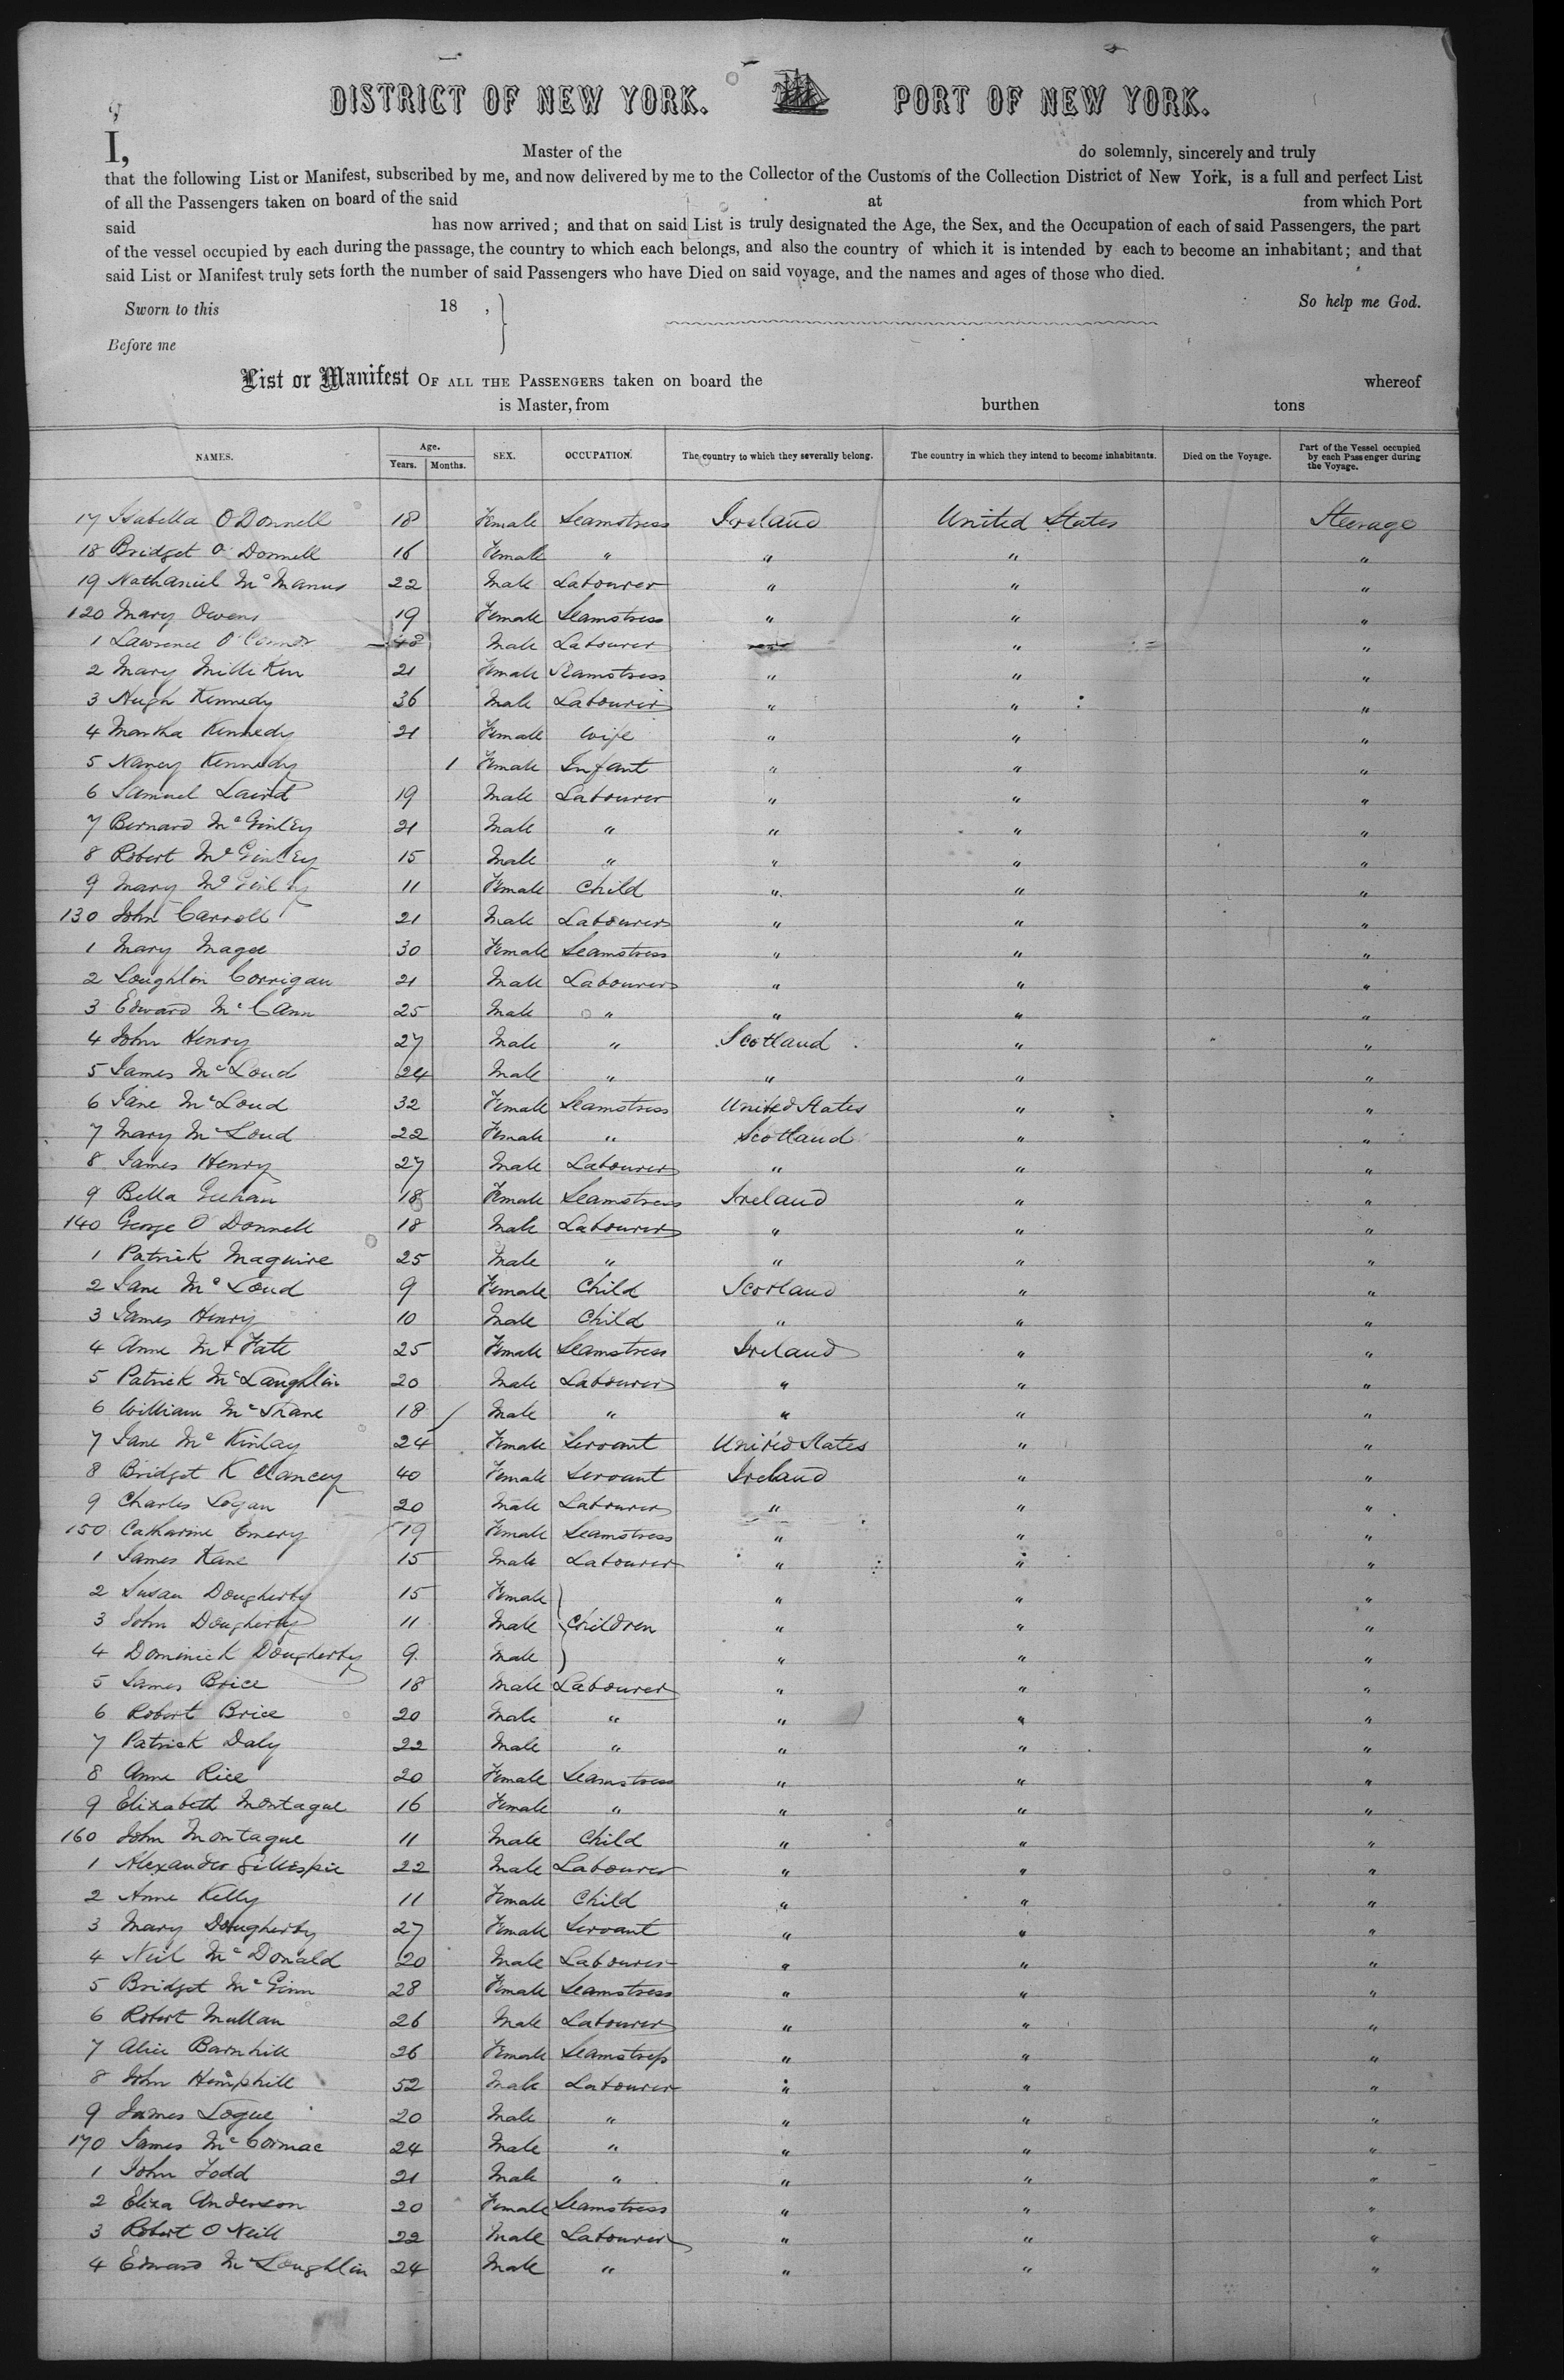 DISTRICT OF NEW YORK. PORT OF NEW YORK.
I, Master of the do solemnly, sincerely and truly
that the following List or Manifest, subscribed by me, and now delivered by me to the Collector of the Customs of the Collection District of New York, is a full and perfect List
of all the Passengers taken on board of the said at from which Port
said has now arrived; and that on said List is truly designated the Age, the Sex, and the Occupation of each of said Passengers, the part
of the vessel occupied by each during the passage, the country to which each belongs, and also the country of which it is intended by each to become an inhabitant; and that
said List or Manifest truly sets forth the number of said Passengers who have Died on said voyage, and the names and ages of those who died.
Sworn to this 18 , So help me God.
Before me
List or Manifest OF ALL THE PASSENGERS taken on board the whereof
is Master, from burthen tons
NAMES. Age. Years. Months. SEX. OCCUPATION. The country to which they severally belong. The country in which they intend to become inhabitants. Died on the Voyage. Part of the Vessel occupied by each Passenger during the Voyage.
17 Isabella O'Donnell 18 Female Seamstress Ireland United States Steerage
18 Bridget O'Donnell 16 Female " " " "
19 Nathaniel McManus 22 Male Labourer " " "
120 Mary Owens 19 Female Seamstress " " "
1 Lawrence O'Connor 48 Male Labourer " "
2 Mary Milliken 21 Female Seamstress " " "
3 Hugh Kennedy 36 Male Labourer " " "
4 Martha Kennedy 21 Female Wife " " "
5 Nancy Kennedy 1 Female Infant " " "
6 Samuel Laird 19 Male Labourer " " "
7 Bernard McGinley 21 Male " " " "
8 Robert McGinley 15 Male " " " "
9 Mary McGinley 11 Female Child " " "
130 John Carroll 21 Male Labourer " " "
1 Mary Magee 30 Female Seamstress " " "
2 Loughlin Corrigan 21 Male Labourer " " "
3 Edward McCann 25 Male " " " "
4 John Henry 27 Male " Scotland " "
5 James McLoud 24 Male " " " "
6 Jane McLoud 32 Female Seamstress United States " "
7 Mary McLoud 22 Female " Scotland " "
8 James Henry 27 Male Labourer " " "
9 Bella Geehan 18 Female Seamstress Ireland " "
140 George O'Donnell 18 Male Labourer " " "
1 Patrick Maguire 25 Male " " " "
2 Jane McLoud 9 Female Child Scotland " "
3 James Henry 10 Male Child " " "
4 Anne McFate 25 Female Seamstress Ireland " "
5 Patrick McLaughlin 20 Male Labourer " " "
6 William McShane 18 Male " " " "
7 Jane McKinlay 24 Female Servant United States " "
8 Bridget K Clancey 40 Female Servant Ireland " "
9 Charles Logan 20 Male Labourer " " "
150 Catharine Emery 19 Female Seamstress " " "
1 James Kane 15 Male Labourer " " "
2 Susan Dougherty 15 Female " " "
3 John Dougherty 11 Male Children " " "
4 Dominick Dougherty 9 Male " " "
5 James Brice 18 Male Labourer " " "
6 Robert Brice 20 Male " " " "
7 Patrick Daly 22 Male " " " "
8 Anne Rice 20 Female Seamstress " " "
9 Elizabeth Montague 16 Female " " " "
160 John Montague 11 Male Child " " "
1 Alexander Gillespie 22 Male Labourer " " "
2 Anne Kelly 11 Female Child " " "
3 Mary Dougherty 27 Female Servant " " "
4 Neil McDonald 20 Male Labourer " " "
5 Bridget McGinn 28 Female Seamstress " " "
6 Robert Mullan 26 Male Labourer " " "
7 Alice Barnhill 26 Female Seamstress " " "
8 John Hemphill 52 Male Labourer " " "
9 James Logue 20 Male " " " "
170 James McCormac 24 Male " " " "
1 John Todd 21 Male " " " "
2 Eliza Anderson 20 Female Seamstress " " "
3 Robert O'Neill 22 Male Labourer " " "
4 Edward McLoughlin 24 Male " " " "